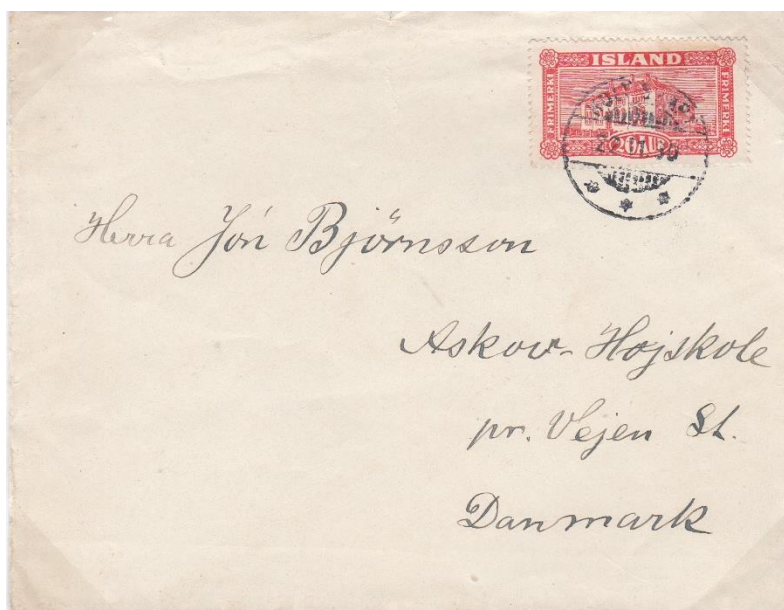 ISLAND
FRIMERKI
FRIMERKI
20
Herra Jón Björnsson
Askov-Højskole
pr. Vejen St.
Danmark